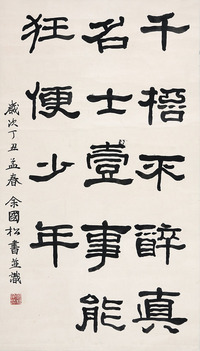 千桮不醉真
名士壹事能
狂便少年
歲次丁丑孟春余國松書並識